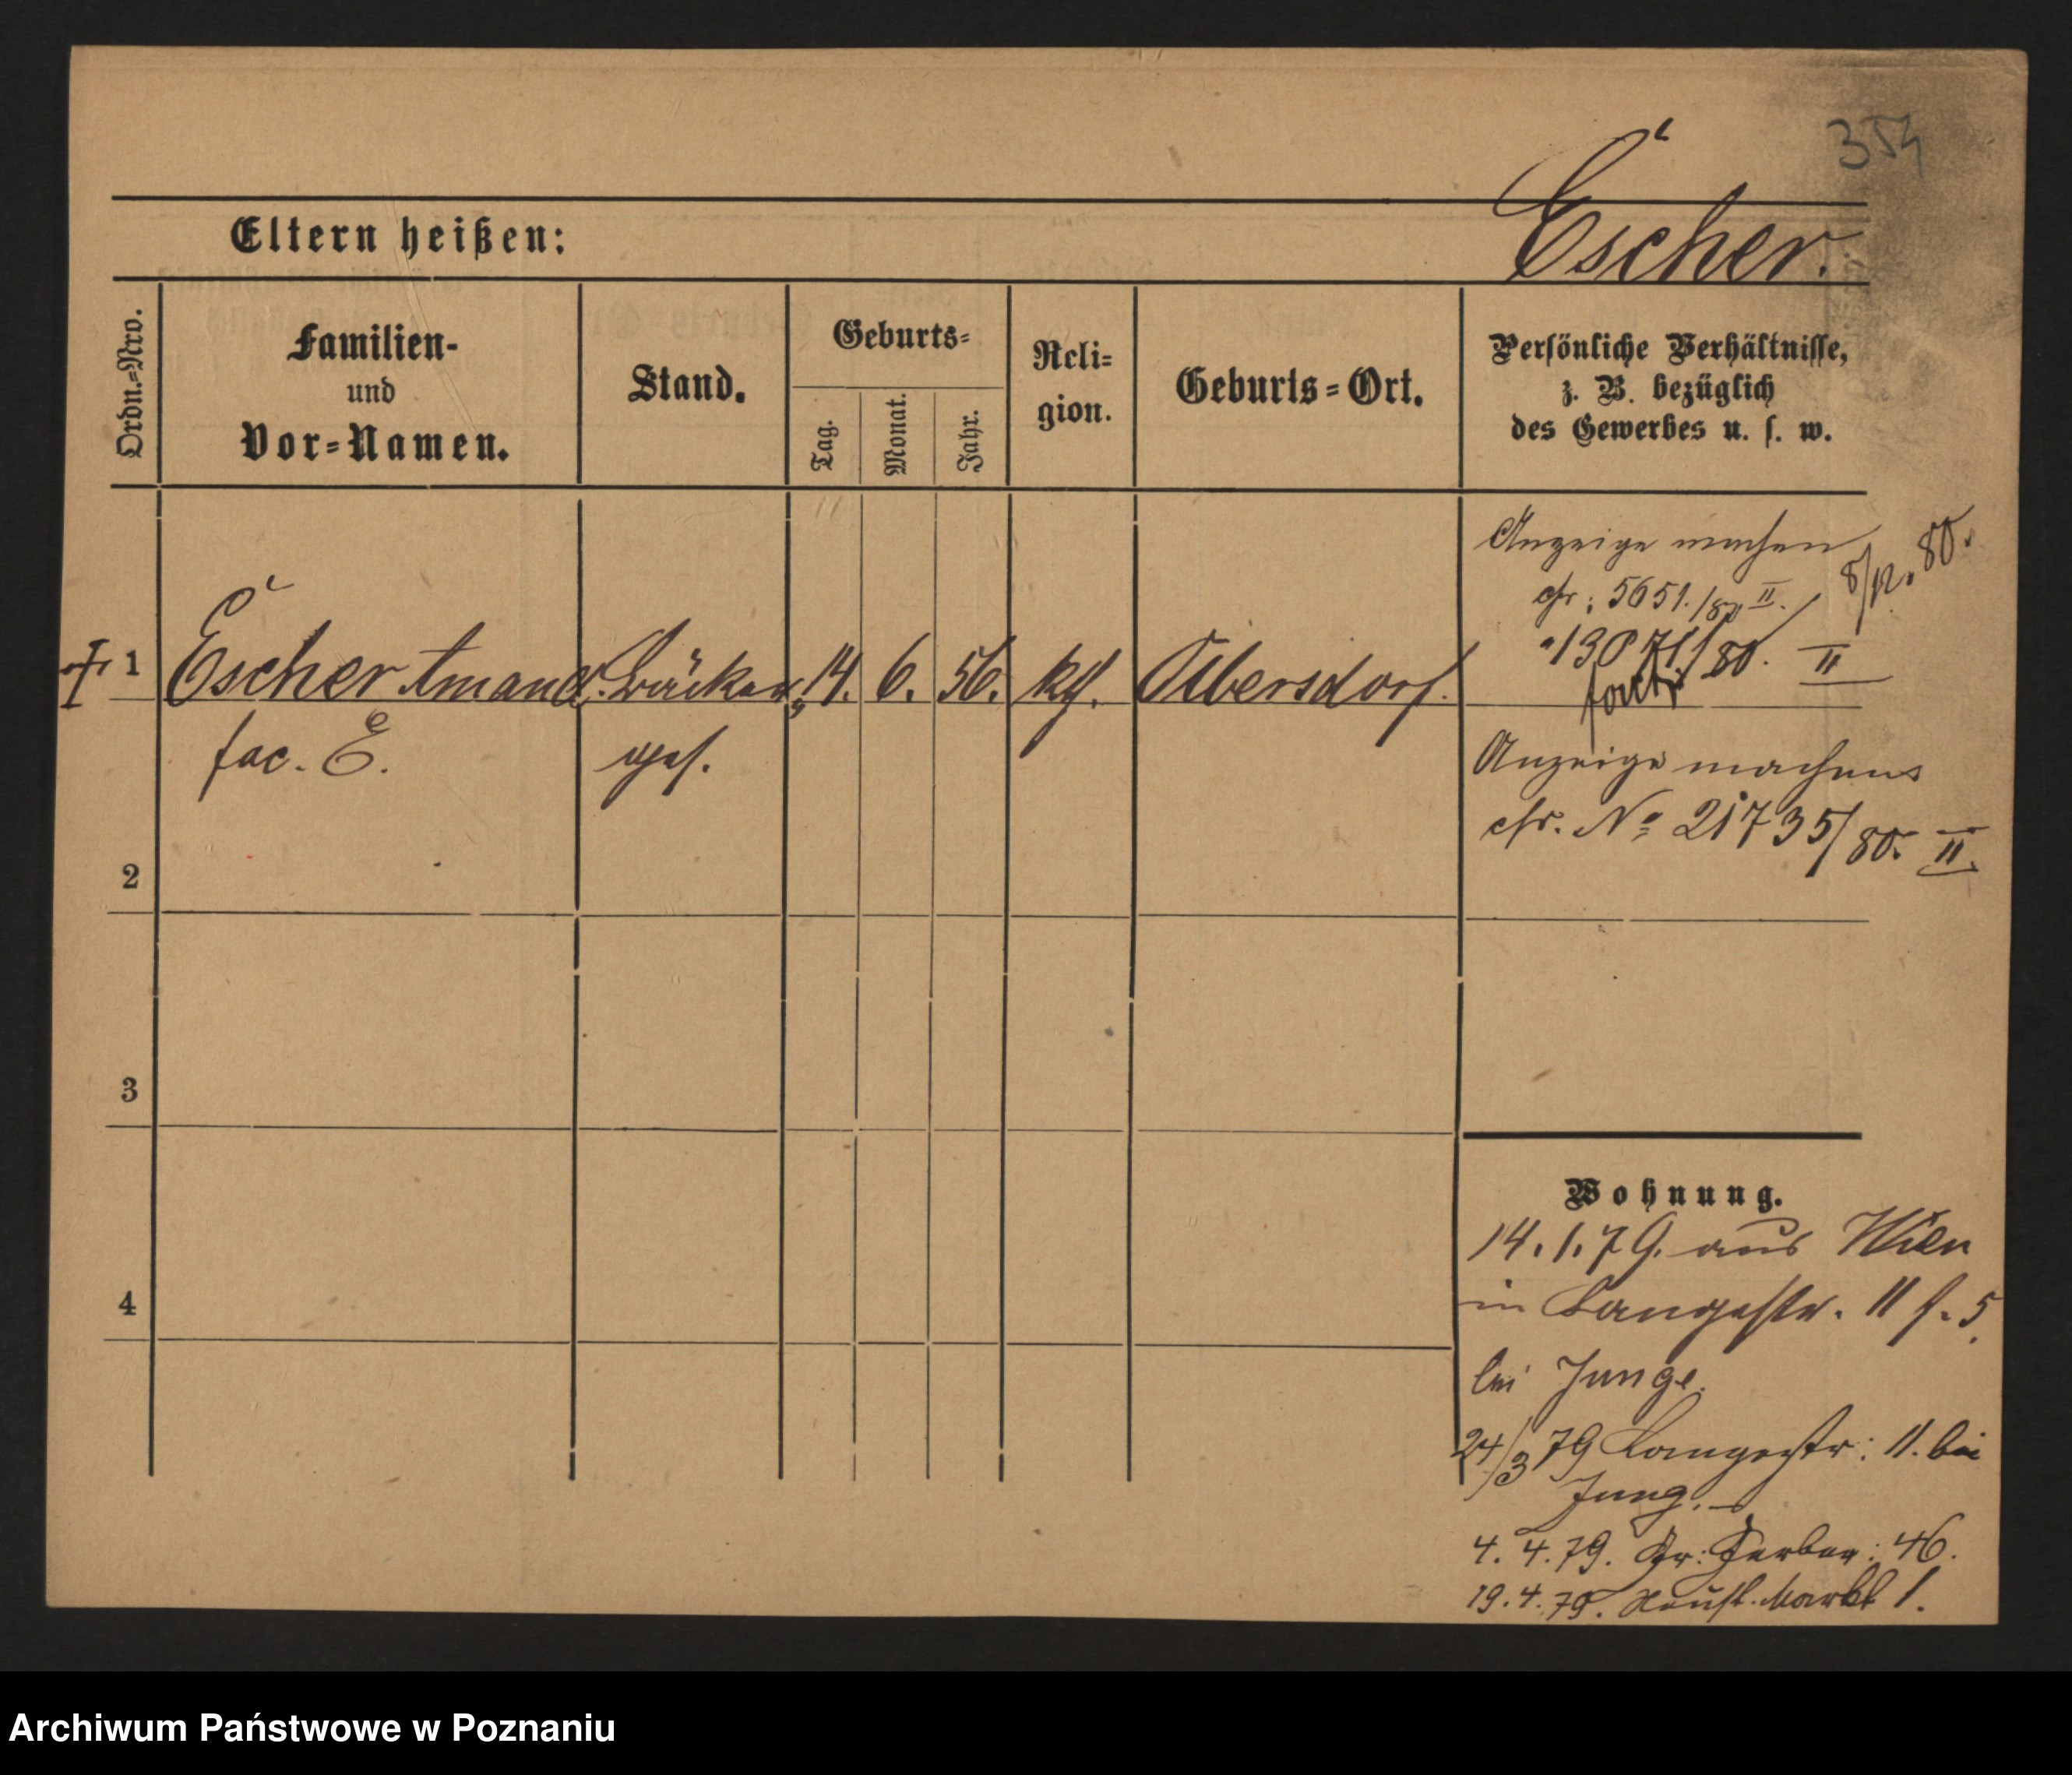 354
Escher.
Eltern heißen:
Ordn.-Nro.
Familien-
und
Vor-Namen.
Stand.
Geburts-
Tag.
Monat.
Jahr.
Reli-
gion.
Geburts-Ort.
Persönliche Verhältnisse,
z. B. bezüglich
des Gewerbes u. s. w.
Anzeige machen
cfr: 5651./80 II. 8/12. 80.
" 13071/80. II
fort
1 Escher Amand Bäcker 14. 6. 56. kth. Olbersdorf.
fac. E. ges.
Anzeige machen
cfr. No 21735/80. II.
2
3
4
Wohnung.
14.1.79. aus Wien
in Langestr. 11 f. 5.
bei Junge.
24/3 79 Langestr: 11. bei
Jung.
4. 4. 79. Gr: Gerber: 46.
19. 4. 79. Neust. Markt 1.
Archiwum Państwowe w Poznaniu